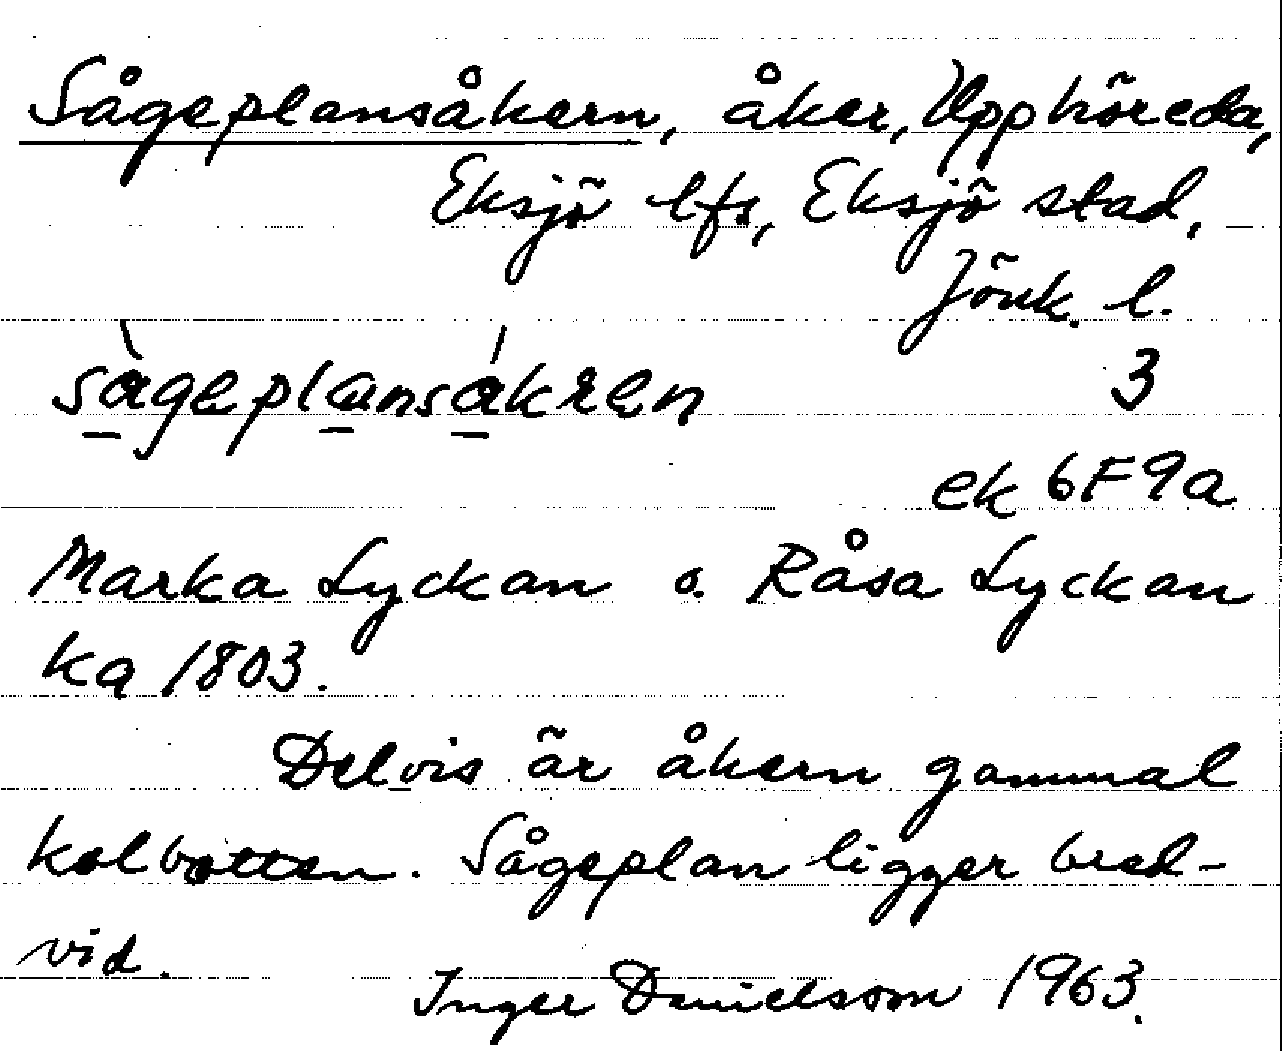 Sågeplansåkern, åker, Upphöreda,
Eksjö lfs, Eksjö stad,
Jönk. l.
sàgeplansákren 3
ek 6F9a
Marka Lyckan o. Råsa Lyckan
ka 1803.
Delvis är åkern gammal
kolbotten. Sågeplan ligger bred-
vid.
Inger Danielsson 1963.